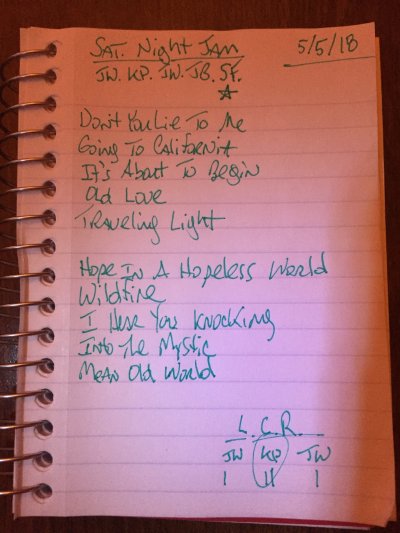 SAT. Night JAM 5/5/18
JW. KP. JW. JB. SF.
Don't You Lie To Me
Going To California
It's About To Begin
Old Love
Traveling Light
Hope In A Hopeless World
Wildfire
I Hear You Knocking
Into The Mystic
Mean Old World
L. C. R.
JW KP JW
I II I